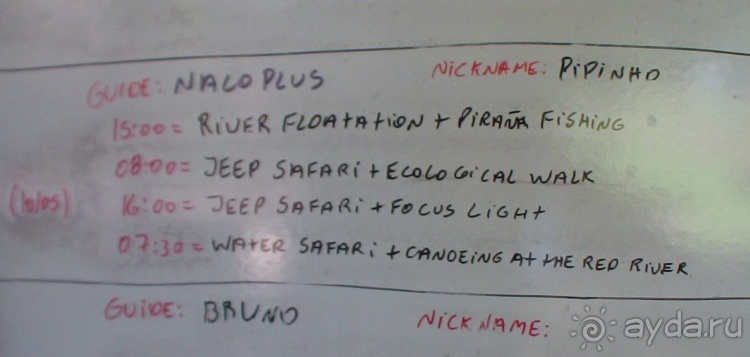 GUIDE: NALOPLUS NICKNAME: PiPiNHO
15:00 = RiVER FLOAtAtiON + PiRAÑA FiSHiNG
08:00 = JEEP SAFARi + ECOLOGiCAL WALK
(10/05) 16:00 = JEEP SAFARi + FOCUS LiGHt
07:30 = WAtER SAFARi + CANOEiNG At tHE RED RiVER
GUiDE: BRUNO NiCKNAME:
ayda.ru